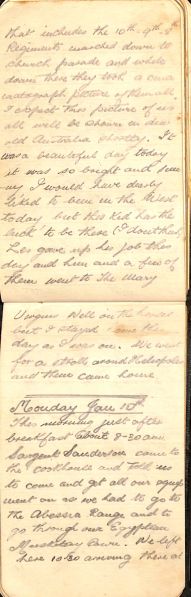 that includes the 10th 9th
Regiments marched down to
church parade and while
down there they took a cinia
matograph picture of them all
I expect this picture of us
all will be shown in dear
old Australia shortly. It
was a beautiful day today
it was so bright and sun
ny I would have dearly
liked to been in the West
today but this kid has the
luck to be there I dont think
Les gave up his job this
day and him and a few of
them went to the Mary
Virgins Well in the
but I stayed home this
day as I was on. We went
for a stroll around Heliopolis
and then came home
Monday Jan 10th
This morning just after
breakfast about 8-30am
Sargent Sanderson came to
the cookhouse and told us
to come and get all our equip
ment on as we had to go to
the Abassia Range and to
go through our Egyptian
Musketry Course. We left
here 10-30 arriving there at